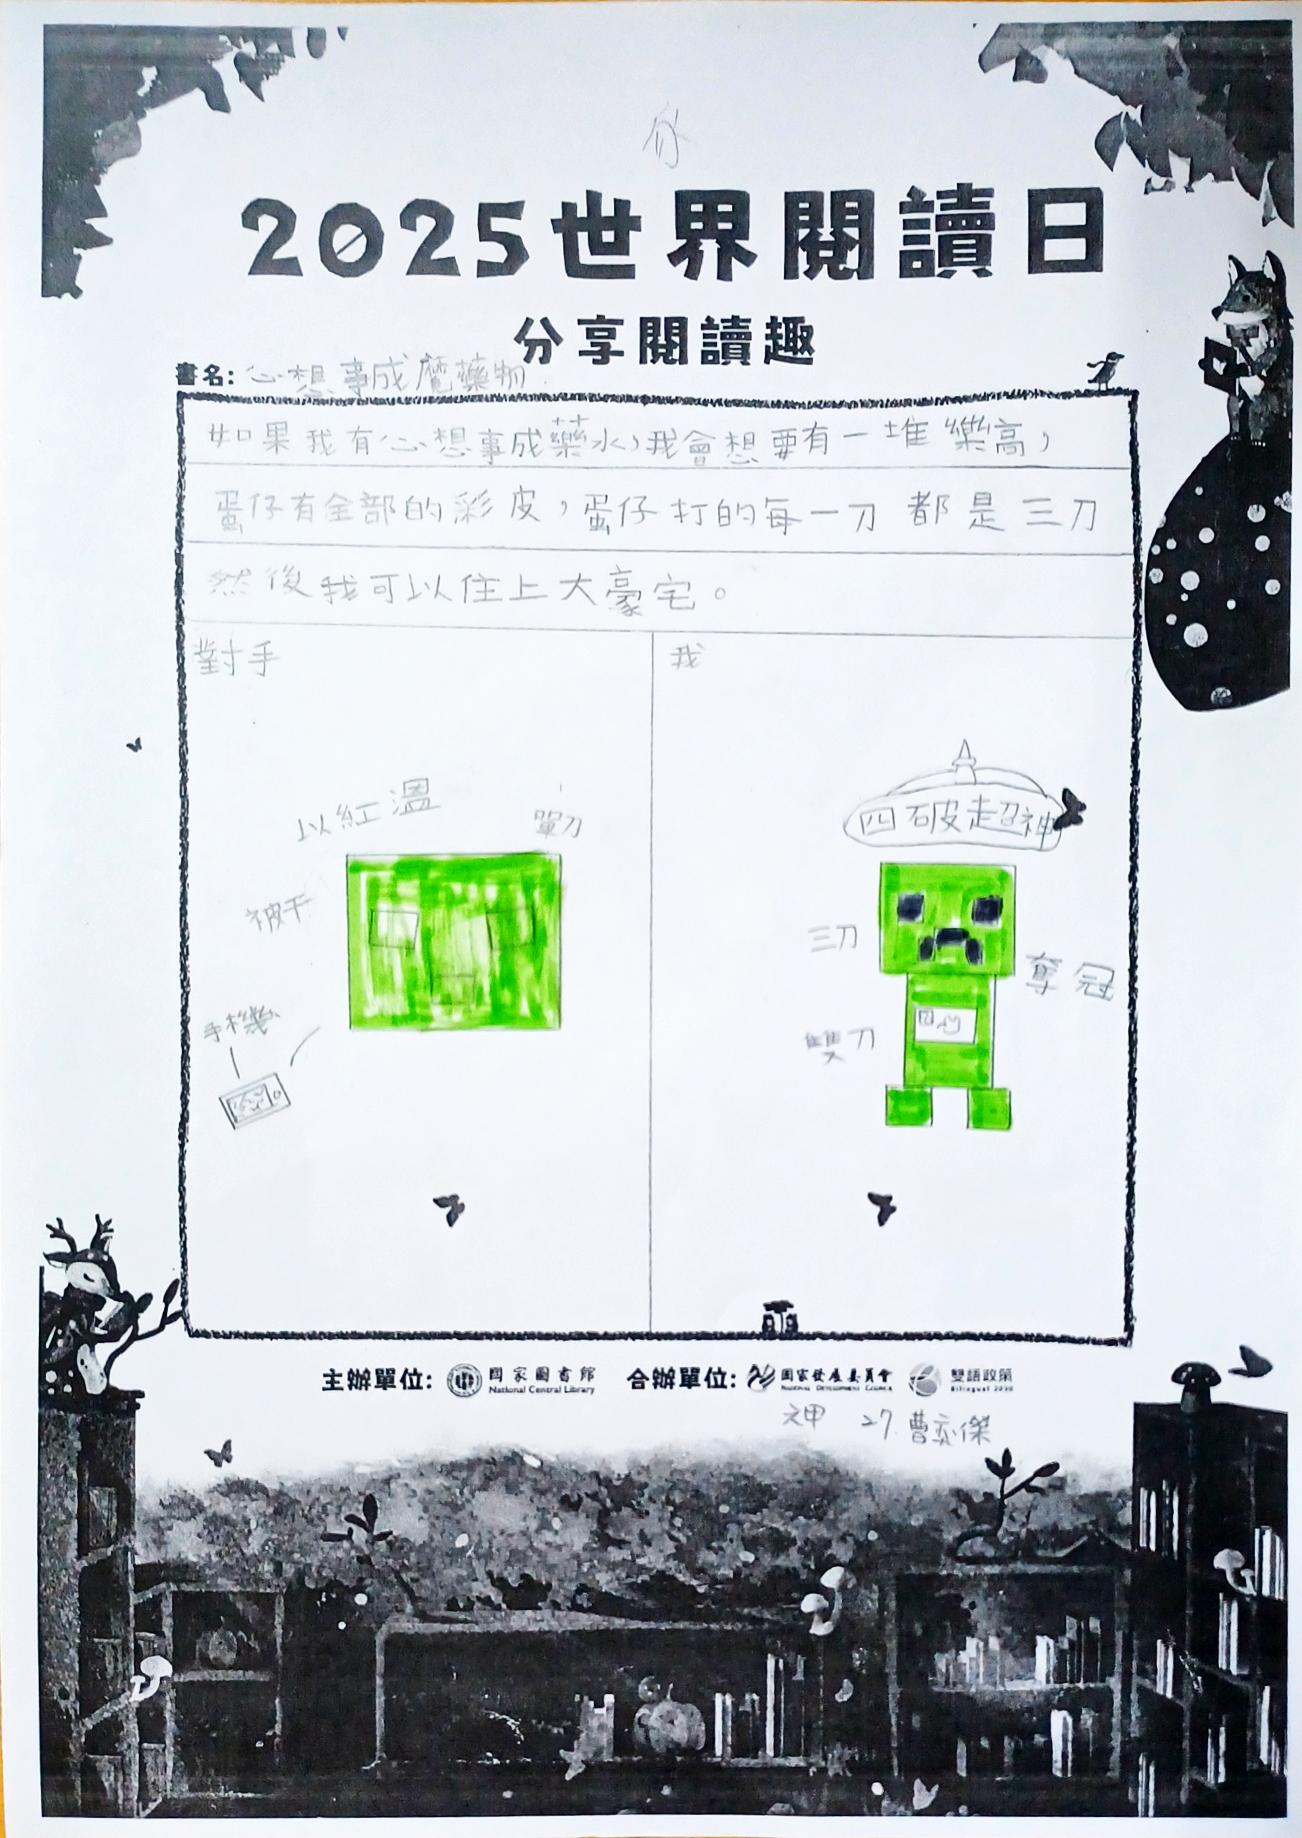 2025世界閱讀日
分享閱讀趣
書名：心想事成魔藥物
如果我有心想事成藥水，我會想要有一堆樂高，
蛋仔有全部的彩皮，蛋仔打的每一刀都是三刀
然後我可以住上大豪宅。
對手
我
以紅溫
單刀
被干
手機
四破超神
三刀
奪冠
雙刀
主辦單位：國家圖書館 National Central Library 合辦單位：國家發展委員會 National Development Council 雙語政策 Bilingual 2030
27.曹亦傑